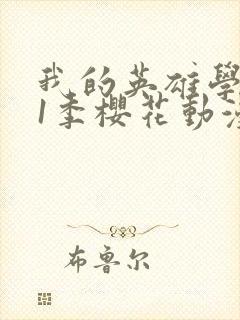 我的英雄學
1季櫻花動漫
布鲁尔